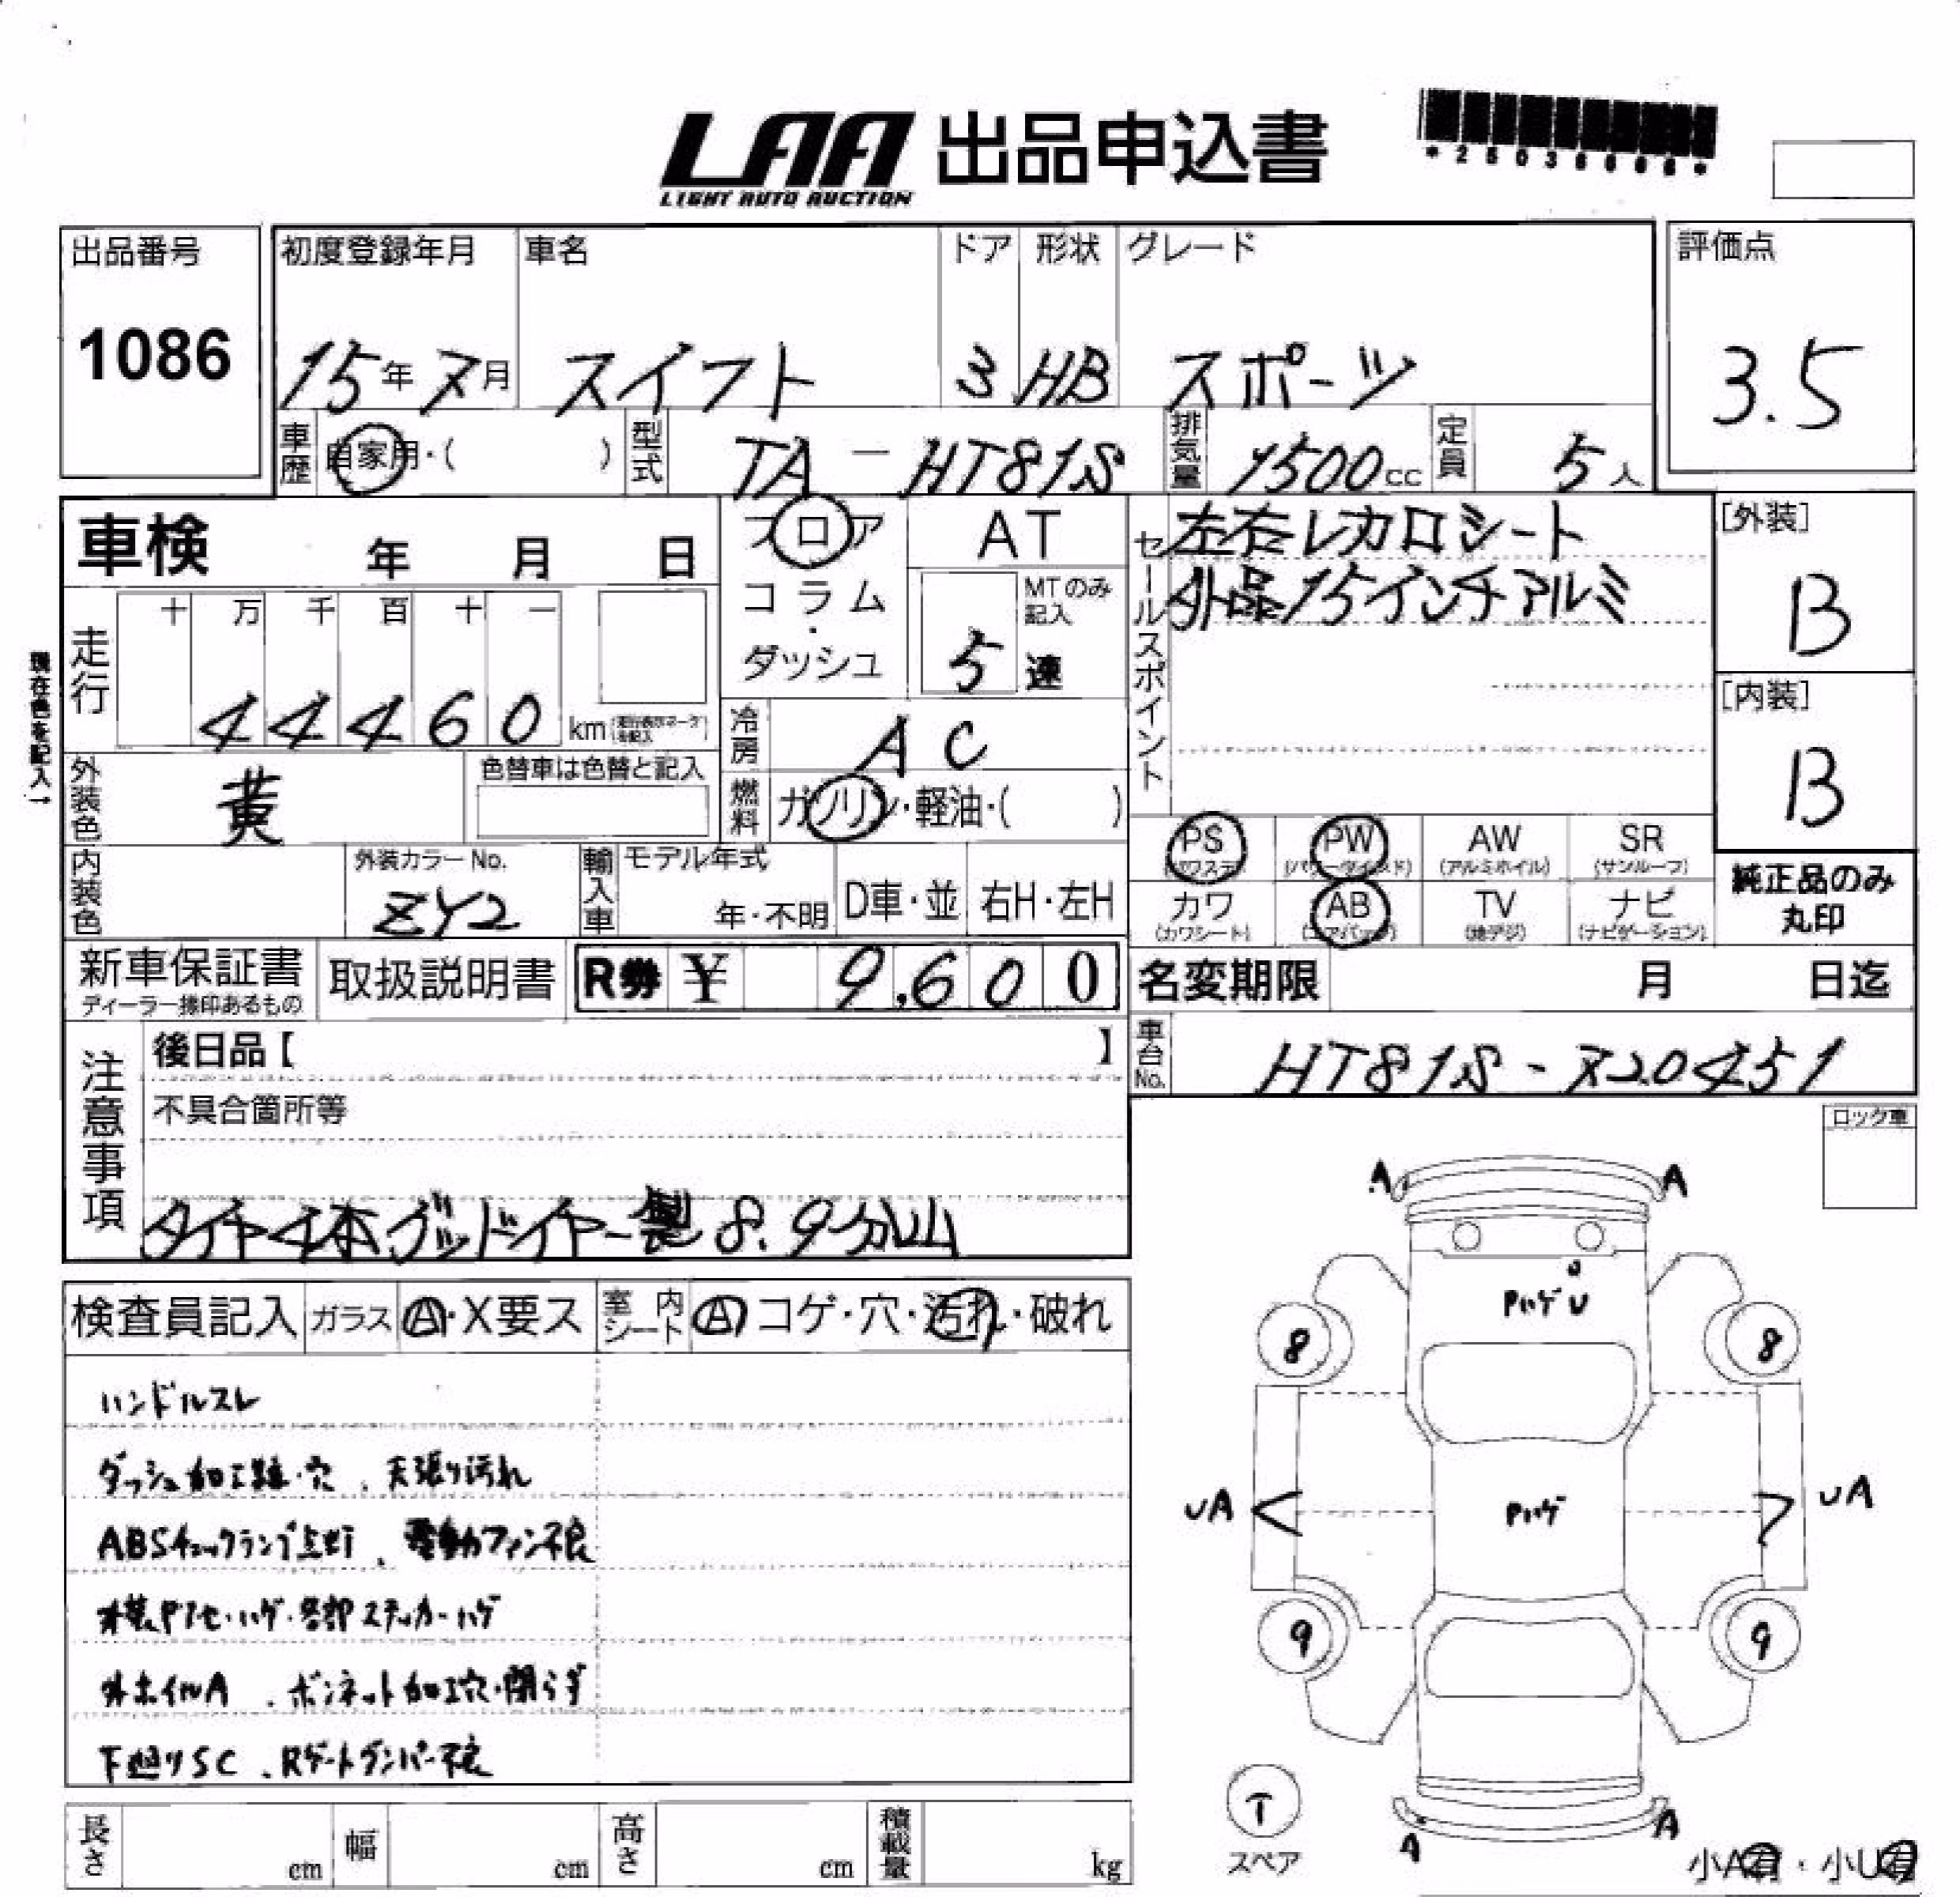 LAA 出品申込書
LIGHT AUTO AUCTION
出品番号
1086
初度登録年月
15年7月
車名
スイフト
ドア
3
形状
HB
グレード
スポーツ
評価点
3.5
車歴
自家用・( )
型式
TA-HT81S
排気量
1500cc
定員
5人
車検 年 月 日
フロア
コラム
・
ダッシュ
AT
MTのみ記入
5速
セールスポイント
左右レカロシート
外品15インチアルミ
[外装]
B
[内装]
B
現在色を記入→
走行
十 万 千 百 十 一
44460 km
冷房
AC
外装色
黄
色替車は色替と記入
燃料
ガソリン・軽油・( )
PS (パワステ)
PW (パワーウインド)
AW (アルミホイル)
SR (サンルーフ)
カワ (カワシート)
AB (エアバッグ)
TV (地デジ)
ナビ (ナビゲーション)
純正品のみ
丸印
内装色
外装カラーNo.
ZY2
輸入車
モデル年式
年・不明
D車・並
右H・左H
新車保証書
ディーラー捺印あるもの
取扱説明書
R券 ¥ 9,600
名変期限 月 日迄
車台No.
HT81S-720451
注意事項
後日品【 】
不具合箇所等
タイヤ4本グッドイヤー製 8.9分山
ロック車
検査員記入
ガラス
A・X要ス
室内シート
A コゲ・穴・汚れ・破れ
ハンドルスレ
ダッシュ加工跡・穴、天張り汚れ
ABSチェックランプ点灯、電動ファン不良
外装ヤケ・ハゲ・各部ステッカーハゲ
外ホイルA、ボンネット加工穴・閉らず
下廻りSC、Rゲートダンパー不良
A A
PハゲU
8 8
UA Pハゲ UA
9 9
T
スペア
A A
小A有・小U有
長さ cm
幅 cm
高さ cm
積載量 kg